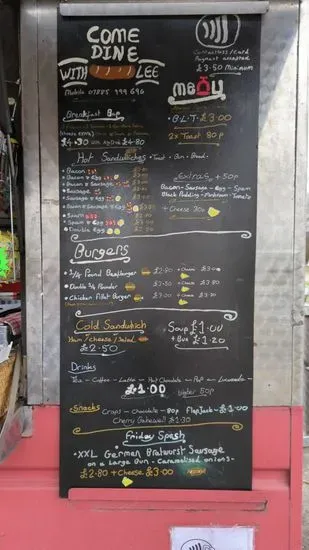 COME
DINE
WITH LEE
Mobile 07885 999 696
Contactless/card
Payment accepted
£3.50 Minimum
menu
Breakfast Bap
£4.30 £4.80
B.L.T. £3.00
2x Toast 80p
Hot Sandwiches • Toast - Bun - Bread -
• Bacon
• Bacon & Egg
• Bacon & Sausage
• Sausage
• Sausage & Egg
• Bacon & Sausage & Egg
• Spam
• Spam & Egg
• Double Egg
Extras + 50p
Bacon - Sausage - Egg - Spam
Black Pudding - Mushroom - Tomato
+ Cheese 30p
Burgers
• 1/4 Pound Beefburger £2.80 + Cheese
• Double 1/4 Pounder £3.50 + Cheese £3.80
• Chicken Fillet Burger £3.00 + Cheese
Cold Sandwich
Ham/cheese/Salad
£2.50
Soup £1.00
+ Bun £1.20
Drinks
Tea - Coffee - Latte - Hot Chocolate - Pop - Lucozade -
£1.00 Water 50p
Snacks Crisps - Chocolate - 80p Flapjack - £1.00
Cherry Bakewell £1.30
Friday Special
• XXL German Bratwurst Sausage
on a Large Bun - Caramelised onions -
£2.80 + Cheese £3.00